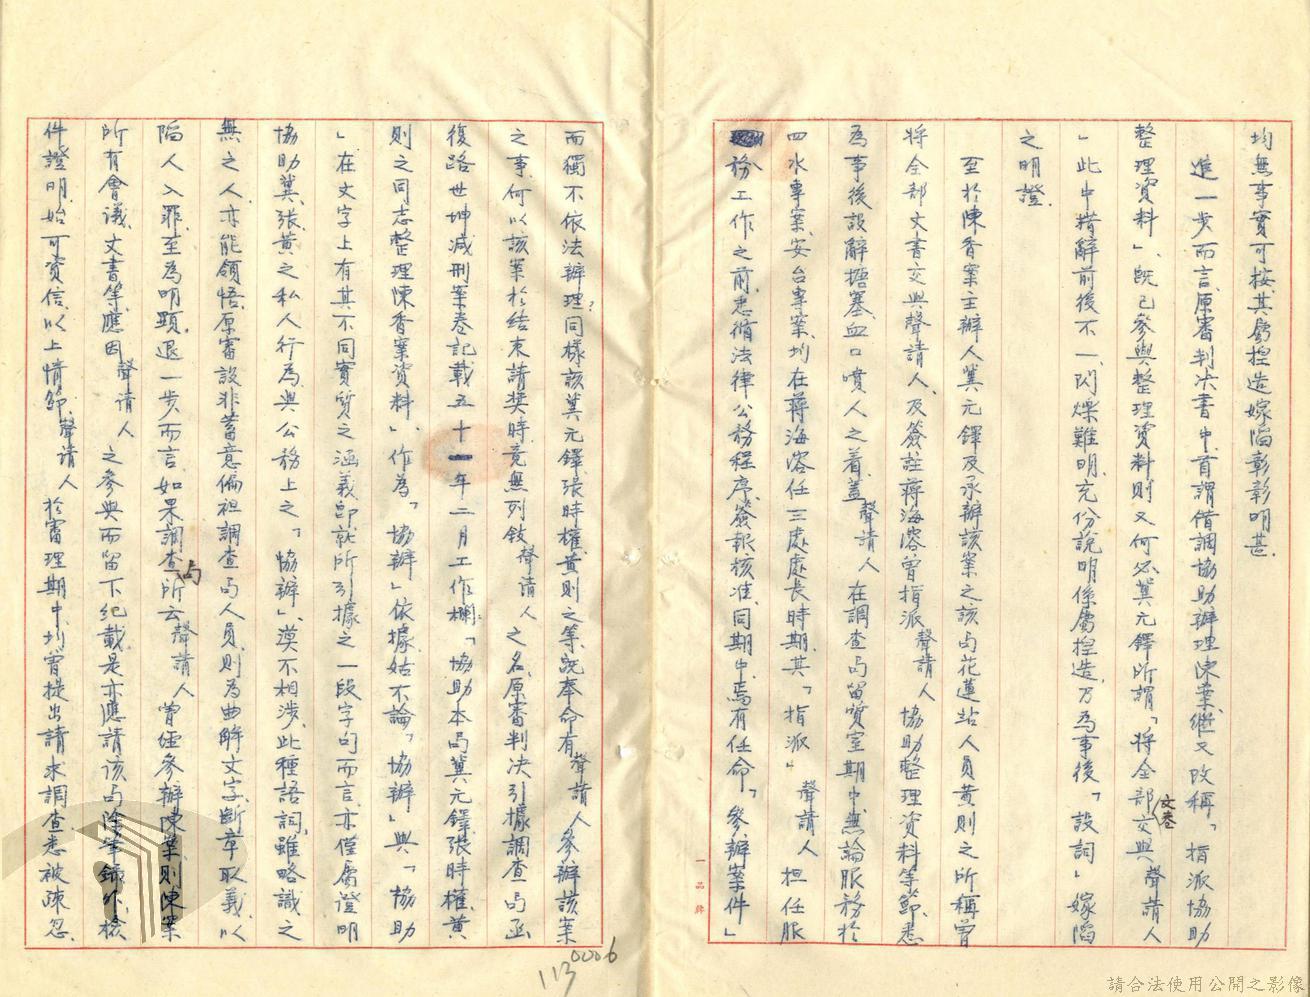 均無事實可按,其虛捏造嫁陷彰彰明甚.
進一步而言,原審判決書中,首謂借調協助辦理陳案,繼又改稱「指派協助
整理資料」、既已參與整理資料則又何必冀元鐸所謂「將全部文卷交與聲請人
」此中措辭前後不一、閃爍難明,充份說明係屬捏造,乃為事後「設詞」嫁陷
之明證.
至於陳香案主辦人冀元鐸及承辦該案之該局花蓮站人員黃則之所稱曾
將全部文書交與聲請人、及簽註蔣海溶曾指派聲請人協助整理資料等節,悉
為事後設辭搪塞,血口噴人之着,蓋聲請人在調查局留質室期中,無論服務於
四水專案、安台專案,均在蔣海溶任三處處長時期,其「指派」聲請人担任服
務工作之前,悉循法律公務程序簽報核准,同期中,焉有任命「參辦案件」
而獨不依法辦理?同樣該冀元鐸張時權黃則之等,既奉命有聲請人參辦該案
之事,何以該案於結束請獎時,竟無列敍聲請人之名,原審判決引據調查局函
復路世坤減刑案卷記載五十一年二月工作欄:「協助本局冀元鐸張時權、黃
則之同志整理陳香案資料」,作為「協辦」依據,姑不論「協辦」與「協助
」在文字上有其不同實質之涵義,即就所引據之一段字句而言,亦僅屬證明
協助冀、張、黃之私人行為,與公務上之「協辦」漠不相涉,此種語詞,雖略識之
無之人,亦能領悟,原審設非蓄意偏袒調查局人員,則為曲解文字,斷章取義、以
陷人入罪,至為明顯,退一步而言,如果調查局所云聲請人曾經參辦陳案,則陳案
所有會議、文書等,應因聲請人之參與而留下紀載,是亦應請該局除筆錄外、檢
件證明,始可資信,以上情節,聲請人於審理期中,均曾提出請求調查悉被疎忽、
一品牌
0006
113
請合法使用公開之影像